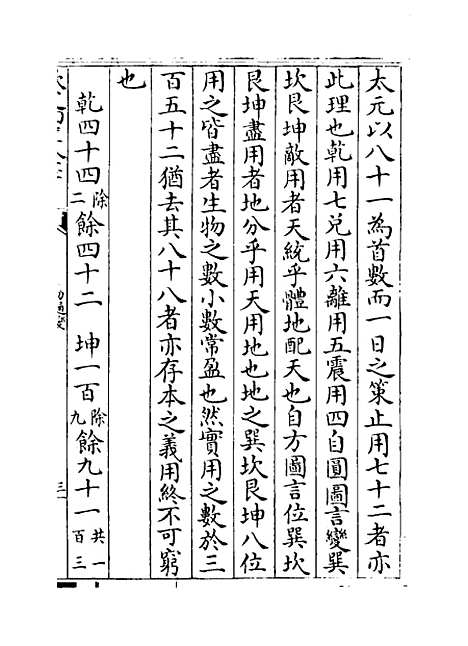 太元以八十一為首數而一日之策止用七十二者亦
此理也乾用七兌用六離用五震用四自圓圖言變巽
坎艮坤敵用者天統乎體地配天也自方圖言位巽坎
艮坤盡用者地分乎用天用地也地之巽坎艮坤八位
用之皆盡者生物之數小數常盈也然實用之數於三
百五十二猶去其八十八者亦存本之義用終不可窮
也
乾四十四除二餘四十二 坤一百除九餘九十一共一百三